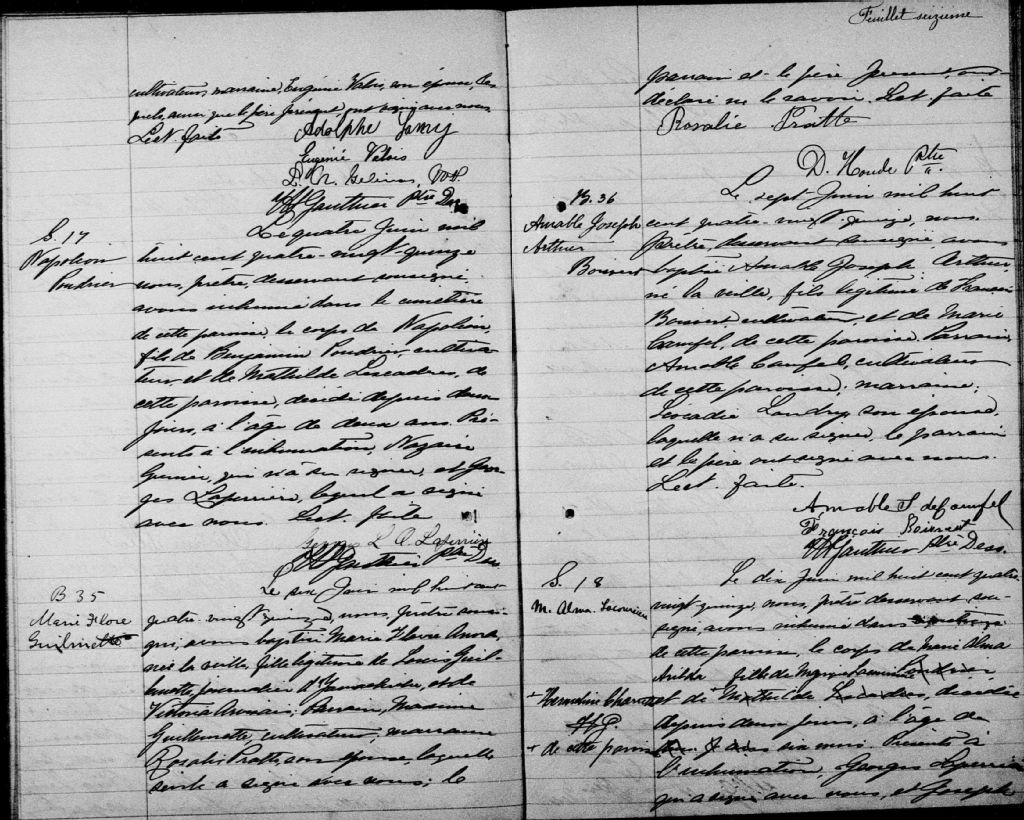 cultivateur, marraine, Eugénie Valois, son épouse, les
quels, ainsi que le père présent, ont signé avec nous
Lect. faite
Adolphe Lamy
Eugénie Valois
Gelinas
Gauthier Ptre Des.
S. 17
Napoléon
Poudrier
Le quatre Juin mil
huit cent quatre-vingt-quinze
nous, prêtre, desservant soussigné
avons inhumé dans le cimetière
de cette paroisse le corps de Napoléon,
fils de Benjamin Poudrier, cultiva-
teur, et de Mathilde Lescadres, de
cette paroisse, décédé depuis deux
jours, à l'âge de deux ans. Pré-
sents à l'inhumation, Nazaire
Grenier, qui n'a su signer, et Geor-
ges Laferrière, lequel a signé
avec nous. Lect. faite
Georges L. O. Laferrière
Gauthier Ptre Des.
B 35
Marie Flore
Guilmette
Le six Juin mil huit cent
quatre-vingt-quinze, nous, prêtre soussi-
gné, avons baptisé Marie Flore
née la veille, fille légitime de Louis Guil-
mette, journalier d'Yamachiche, et de
Victoria Parrain, Maxime
Guilmette, cultivateur, marraine
Rosalie Trotte, son épouse, laquelle
seule a signé avec nous; le
Feuillet seizième
parrain et le père présent, ont
déclaré ne le savoir. Lect. faite
Rosalie Trotte
D. Houde Ptre
B. 36
Amable Joseph
Arthur
Boisvert
Le sept Juin mil huit
cent quatre-vingt-quinze, nous
prêtre, desservant soussigné avons
baptisé Amable Joseph Arthur,
né la veille, fils légitime de François
Boisvert, cultivateur, et de Marie
de cette paroisse. Parrain,
Amable cultivateur
de cette paroisse; marraine;
Léocadie Landry, son épouse,
laquelle n'a su signer, le parrain
et le père ont signé avec nous.
Lect. faite.
Amable
François Boisvert
Gauthier Ptre Dess.
S. 18
M. Alma
Le dix Juin mil huit cent quatre-
vingt-quinze, nous, prêtre desservant sous-
signé, avons inhumé dans
de cette paroisse, le corps de Marie Alma
fille de
et de Mathilde Lescadres, décédée
+ de cette paroisse
depuis deux jours, à l'âge de
six mois. Présents à
l'inhumation, Georges Laferrière
qui a signé avec nous, et Joseph